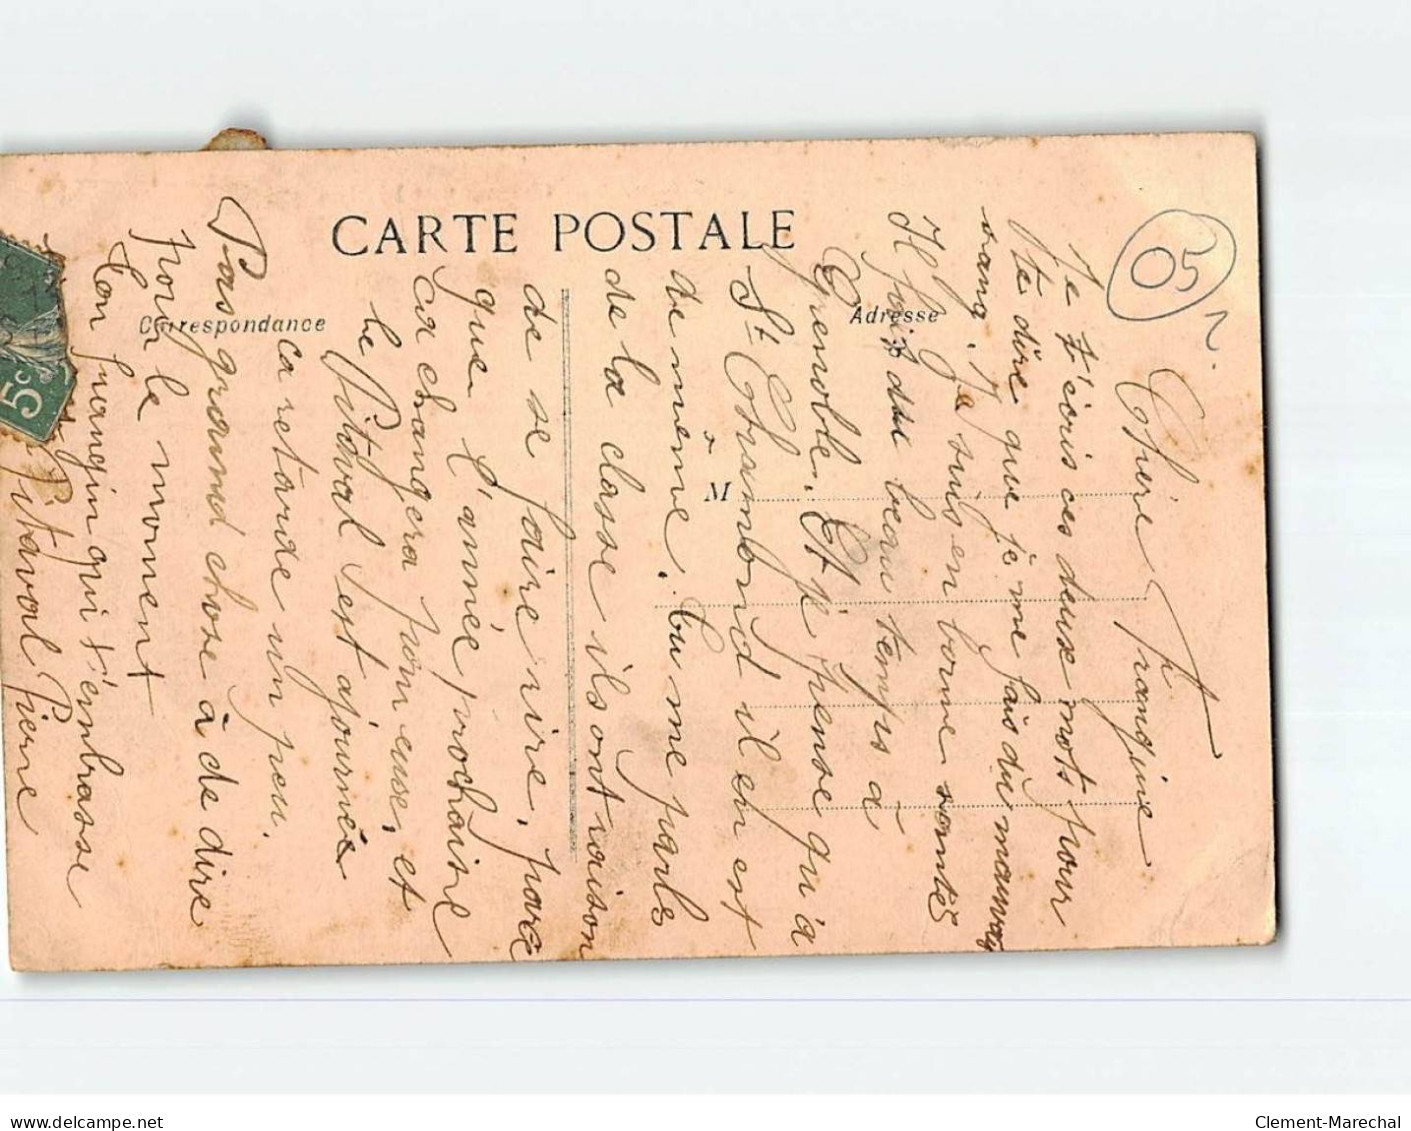 CARTE POSTALE
Correspondance
Adresse
M
05
2
5c
Chère frangine
Je t'écris ces deux mots pour
te dire que je me fais du mauvais
sang. Je suis en bonne santée
Il fait du beau temps à
Grenoble. Et je pense qu'à
St Chambond il en est
de même. Tu me parle
de la classe ils ont raison
de se faire rire, parce
que l'année prochaine
ca changera pour eux, et
le Pitaval s'est ajournée
ca retarde un peu.
Pas grand chose à de dire
pour le moment
Ton frangin qui t'embrasse
Pitaval Pierre
Clement-Marechal
www.delcampe.net